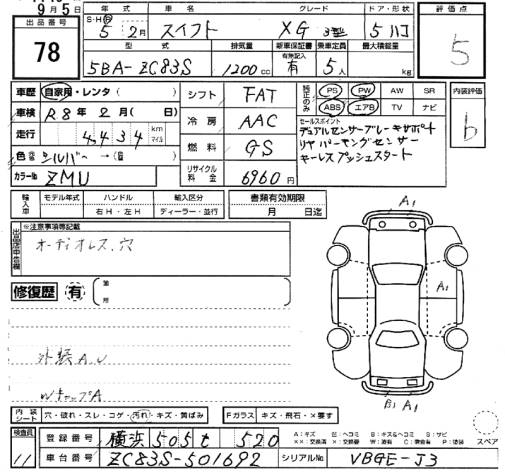 9月5日
出品番号
78
年式 車名 グレード ドア・形状
S・H・R 5年2月 スイフト XG 3型 5ハコ
評価点
5
型式 排気量 新車保証書 乗車定員 最大積載量
有無記入
5BA-ZC83S 1200cc 有 5人 kg
車歴 自家用・レンタ( )
車検 R8年2月(日)
走行 4,434 km マイル
色 シルバー →( 色)
カラーNo ZMU
シフト FAT
冷房 AAC
燃料 GS
リサイクル料金 6960円
純正のみ
PS PW AW SR
ABS エアB TV ナビ
セールスポイント
デュアルセンサーブレーキサポート
リヤパーキングセンサー
キーレスプッシュスタート
内装評価
b
輸入車
モデル年式 ハンドル 輸入区分
右H・左H ディーラー・並行
書類有効期限
月 日迄
※注意事項等記載
オーディオレス、穴
修復歴 有
箇所
外装A,U
WキャップA
A1
A1
B1 A1
内装シート 穴・破れ・スレ・コゲ・汚れ・キズ・黄ばみ
Fガラス キズ・飛石・×要す
スペア
検査員
11
登録番号 横浜 505 た 520
車台番号 ZC83S-501692
シリアルNo VBGE-J3